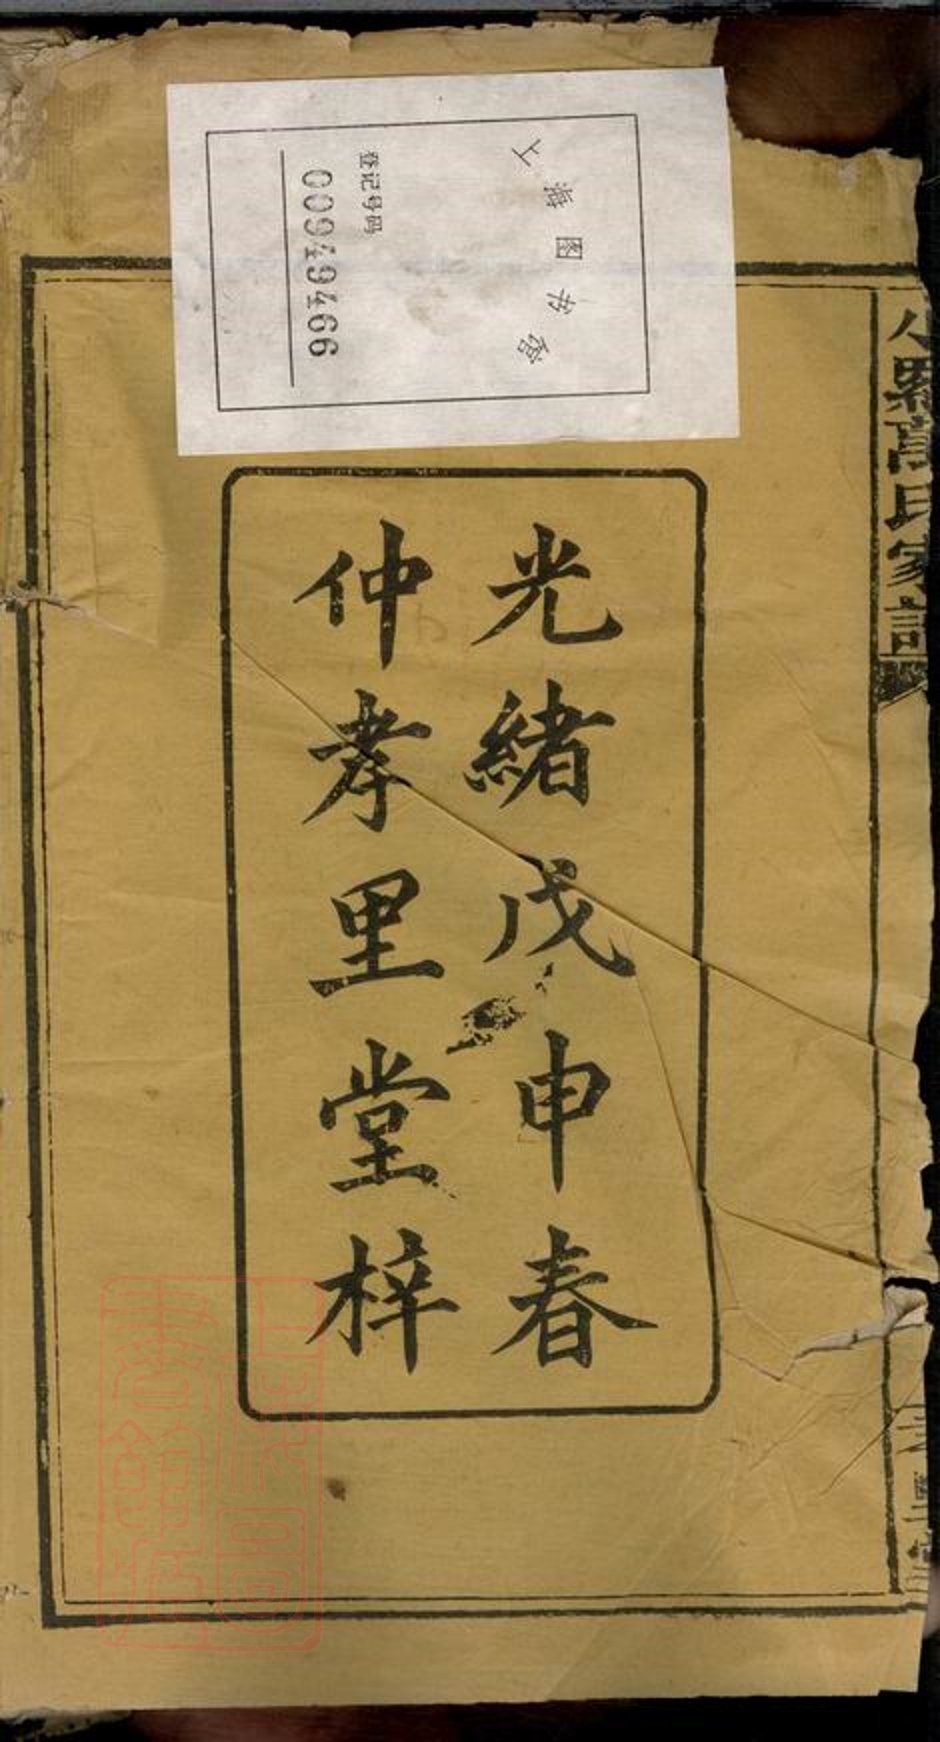 上海图书馆
登记号码
0094949466
光緒戊申春
仲孝里堂梓
高氏家譜